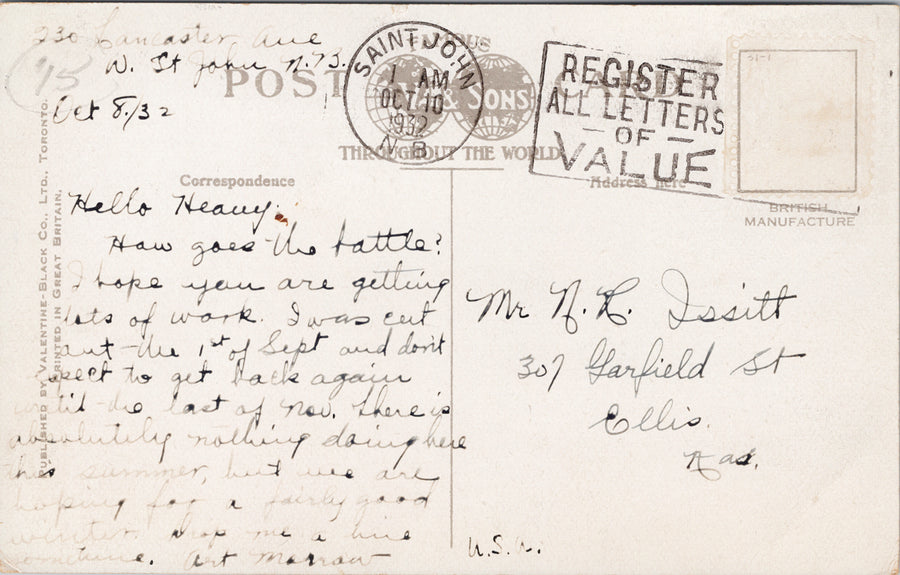 230 Lancaster Ave
W. St John N.B.
Oct 8/32
15
FAMOUS
POST CARD
& SONS
THROUGHOUT THE WORLD
SAINT JOHN
1 AM
OCT 10
1932
N B
REGISTER
ALL LETTERS
OF
VALUE
51-1
BRITISH
MANUFACTURE
Correspondence
Address here
PUBLISHED BY VALENTINE-BLACK CO., LTD., TORONTO.
PRINTED IN GREAT BRITAIN.
Hello Heavy:
How goes the battle?
I hope you are getting
lots of work. I was cut
out the 1st of Sept and don't
xpect to get back again
until the last of Nov. There is
absolutely nothing doing here
this summer, but we are
hoping for a fairly good
winter. Drop me a line
sometime. Art Morrow
Mr N. R. Issitt
307 Garfield St
Ellis.
Kas.
U.S.A.